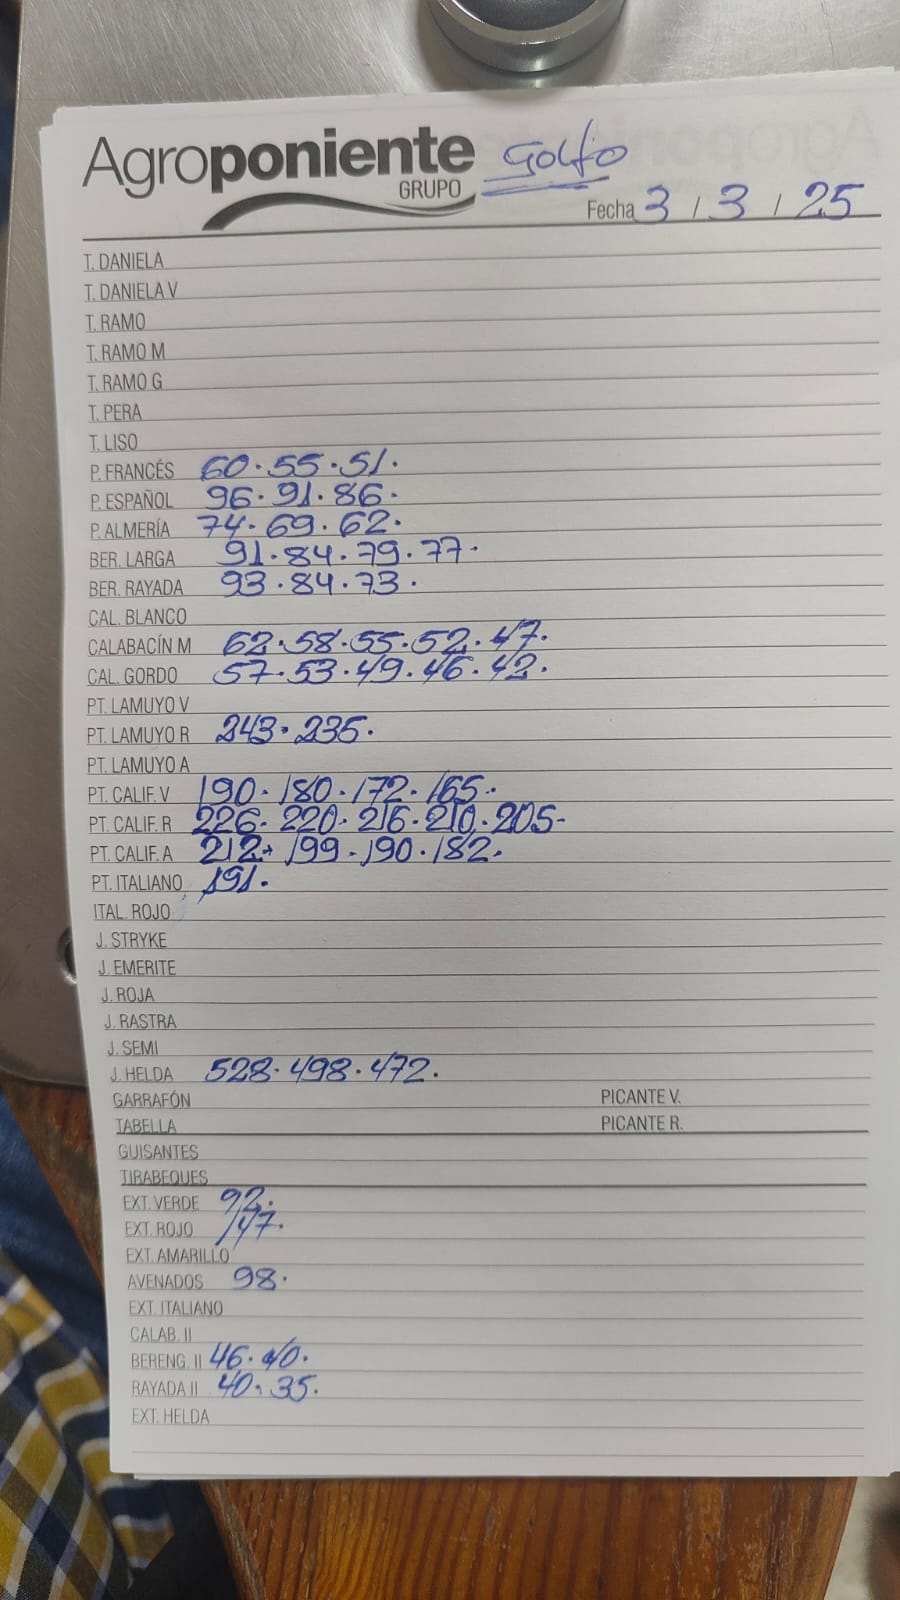 Agroponiente
GRUPO
Golfo
Fecha 3 / 3 / 25
T. DANIELA
T. DANIELA V
T. RAMO
T. RAMO M
T. RAMO G
T. PERA
T. LISO
P. FRANCÉS 60. 55. 51.
P. ESPAÑOL 96. 91. 86.
P. ALMERÍA 74. 69. 62.
BER. LARGA 91. 84. 79. 77.
BER. RAYADA 93. 84. 73.
CAL. BLANCO
CALABACÍN M 62. 58. 55. 52. 47.
CAL. GORDO 57. 53. 49. 46. 42.
PT. LAMUYO V
PT. LAMUYO R 243. 235.
PT. LAMUYO A
PT. CALIF. V 190. 180. 172. 165.
PT. CALIF. R 226. 220. 216. 210. 205-
PT. CALIF. A 212. 199. 190. 182.
PT. ITALIANO 191.
ITAL. ROJO
J. STRYKE
J. EMERITE
J. ROJA
J. RASTRA
J. SEMI
J. HELDA 528. 498. 472.
GARRAFÓN PICANTE V.
TABELLA PICANTE R.
GUISANTES
TIRABEQUES
EXT. VERDE 92.
EXT. ROJO 147.
EXT. AMARILLO
AVENADOS 98.
EXT. ITALIANO
CALAB. II
BERENG. II 46. 40.
RAYADA II 40. 35.
EXT. HELDA